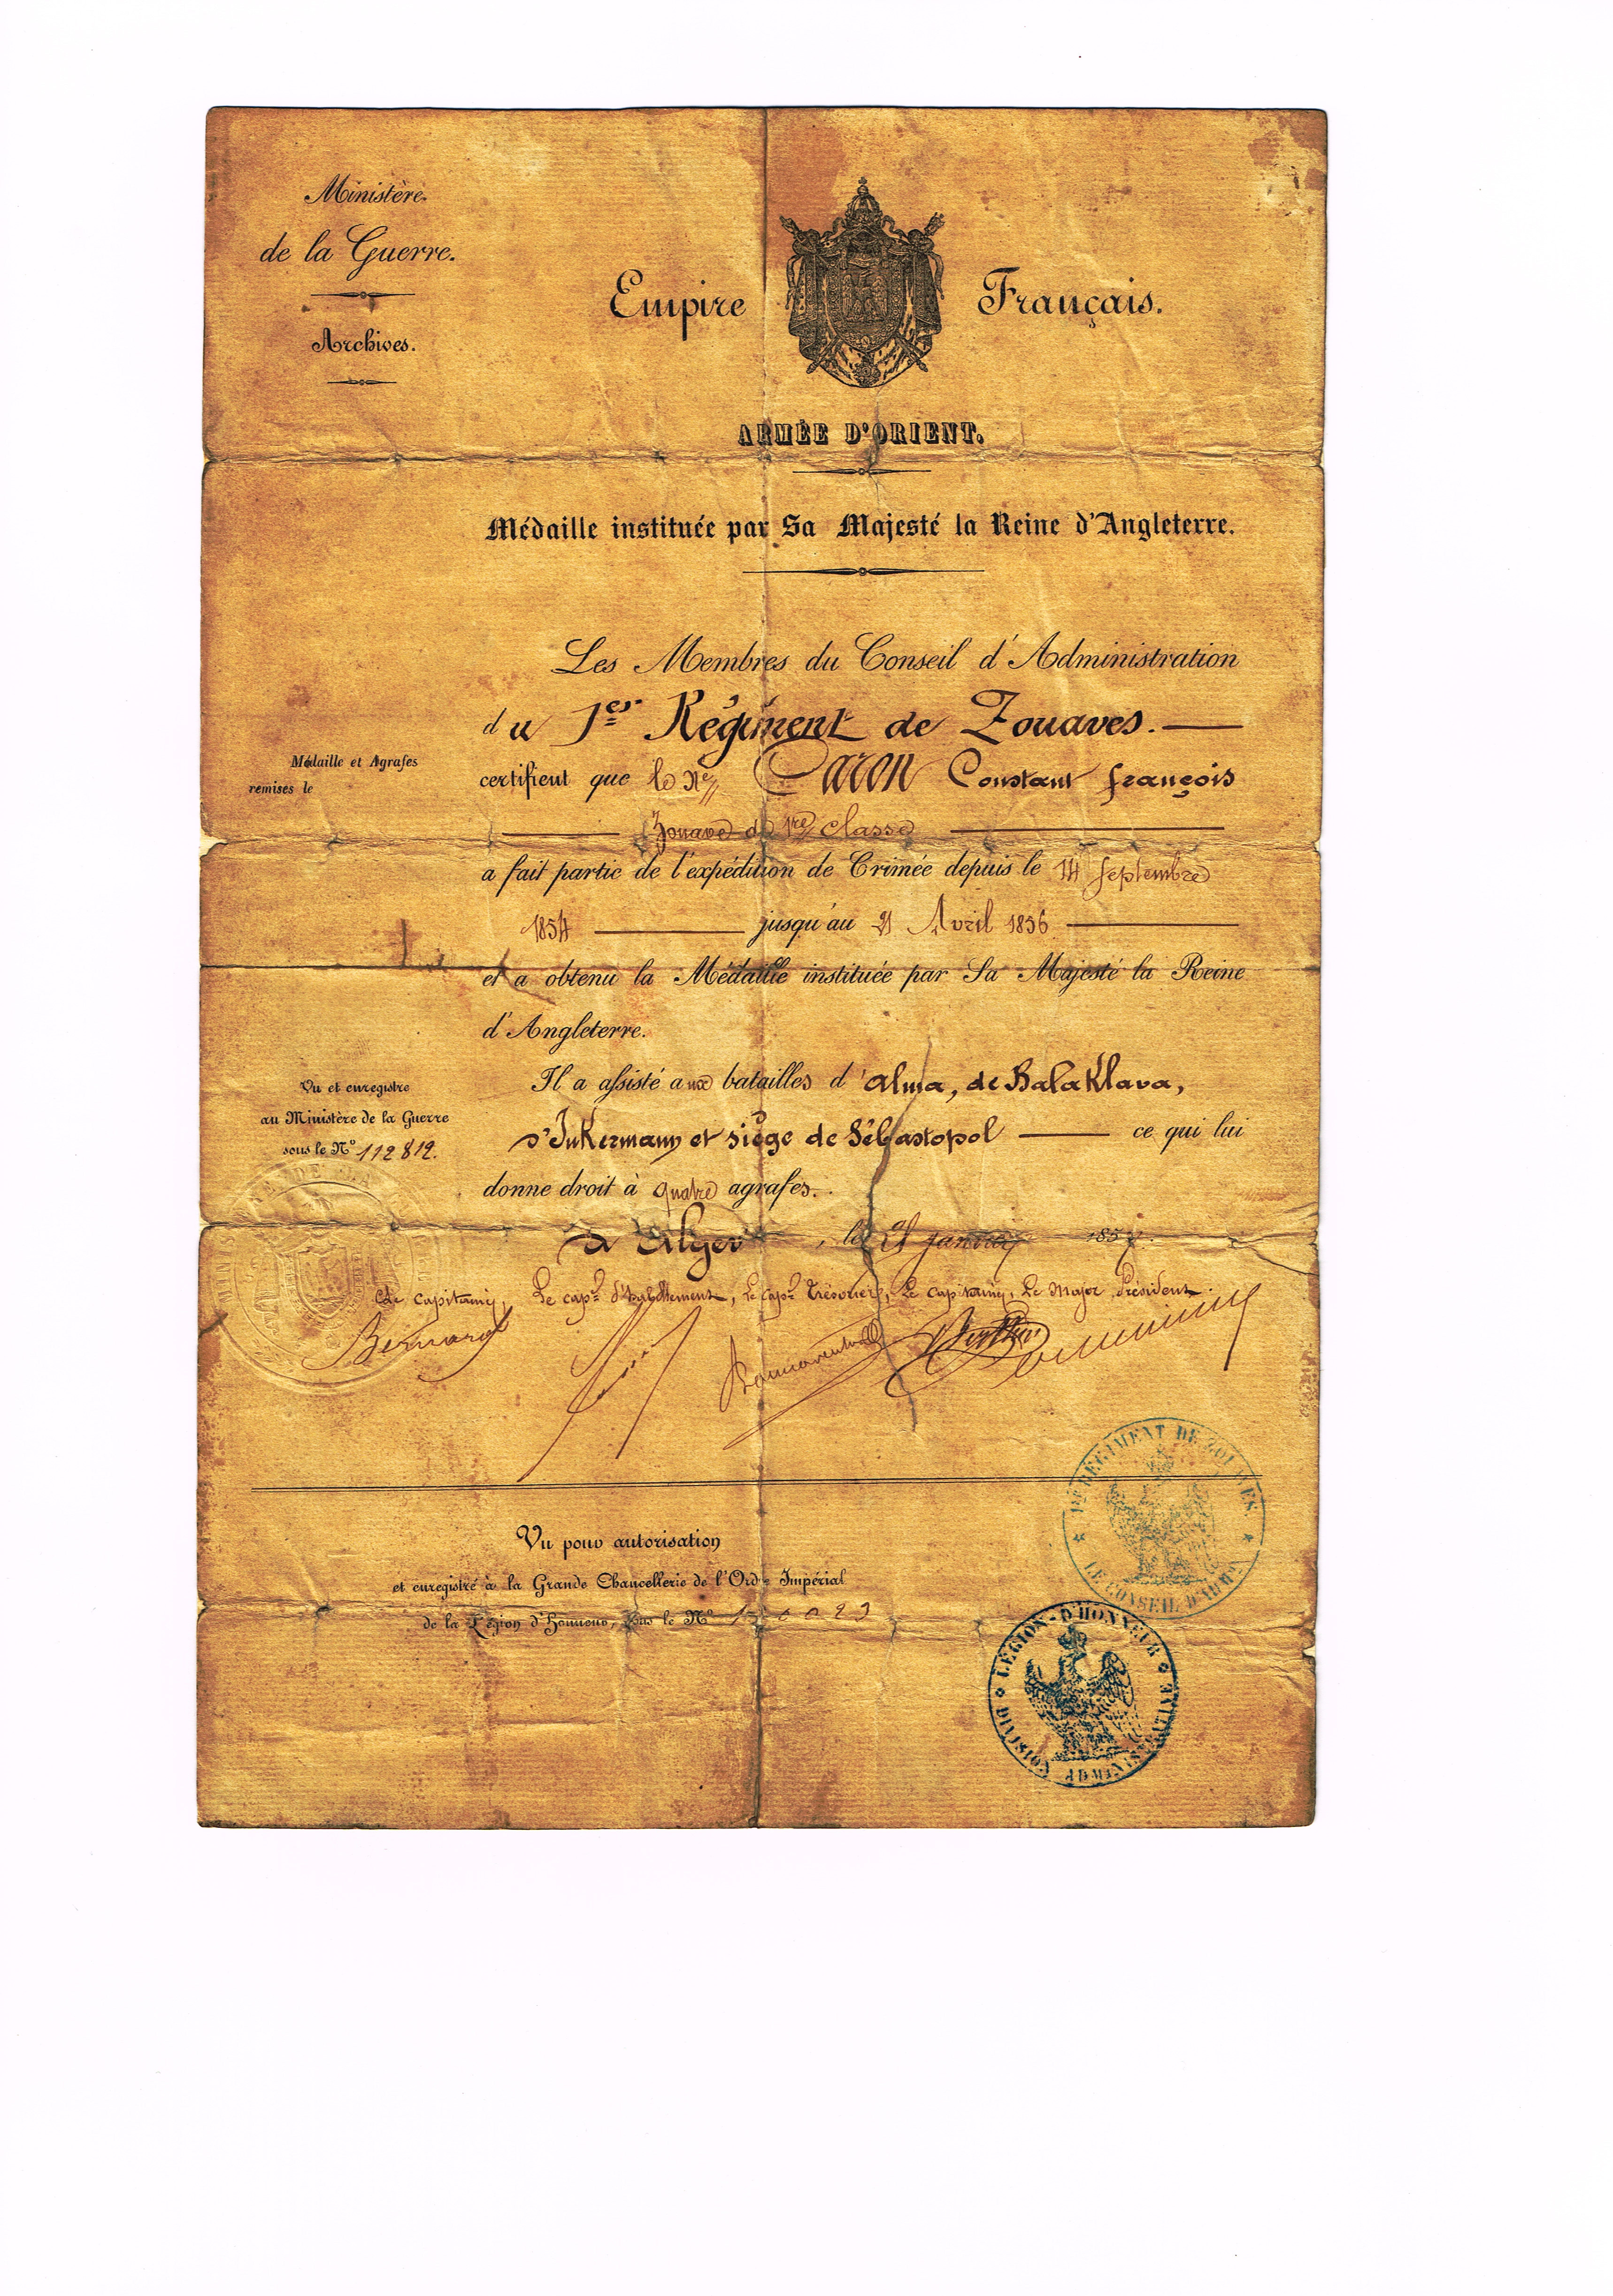 Ministère
de la Guerre.
Archives.
Empire Français.
ARMÉE D'ORIENT.
Médaille instituée par Sa Majesté la Reine d'Angleterre.
Les Membres du Conseil d'Administration
du 1er Régiment de Zouaves.
Médaille et Agrafes
remises le
certifient que le Né Caron Constant françois
Zouave de 1re classe
a fait partie de l'expédition de Crimée depuis le 14 Septembre
1854 jusqu'au 21 Avril 1856
et a obtenu la Médaille instituée par Sa Majesté la Reine
d'Angleterre.
Vu et enregistré
au Ministère de la Guerre
sous le No 112812.
Il a assisté aux batailles d'Alma, de Balaklava,
d'Inkermann et siège de Sébastopol ce qui lui
donne droit à quatre agrafes.
à Alger, le 21 janvier 185
Le Capitaine, Le Capne d'habillement, Le Capne Trésorier, Le Capitaine, Le Major Président.
Bernard
Vu pour autorisation
et enregistré à la Grande Chancellerie de l'Ordre Impérial
de la Légion d'Honneur, sous le No
1ER RÉGIMENT DE ZOUAVES.
LE CONSEIL D'ADMON
LÉGION-D'HONNEUR
DIVISION ADMINISTRATIVE